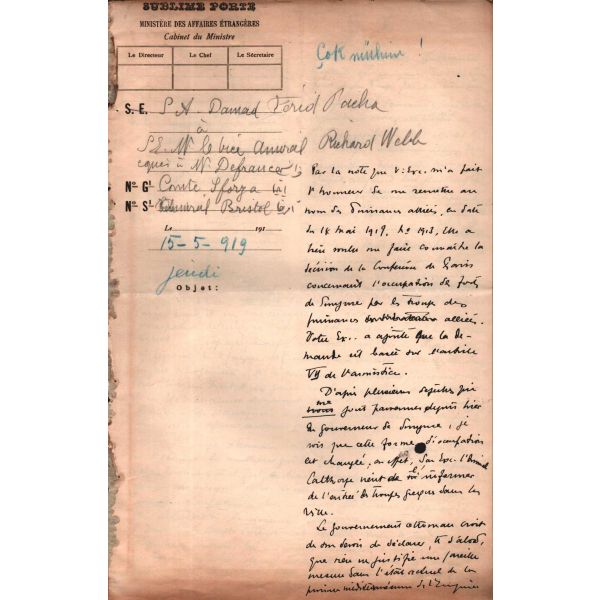 SUBLIME PORTE
MINISTÈRE DES AFFAIRES ÉTRANGÈRES
Cabinet du Ministre
Le Directeur Le Chef Le Secrétaire
Çok mühim !
S. E. S A. Damad Férid Pacha
à
S.E. Mr le vice Amiral Richard Webb
à Mr Defrance
No Gl Comte Sforza
No Sl Amiral Bristol
Le 191
15-5-919
jeudi
Objet:
Par la note que V. Exc. m'a fait
l'honneur de me remettre au
nom des Puissances alliées, en date
du 14 Mai 1919, No 1913, Elle a
bien voulu me faire connaître la
décision de la Conférence de Paris
concernant l'occupation des forts
de Smyrne par les troupes des
puissances alliées.
Votre Exc. a ajouté que la de-
mande est basée sur l'article
VII de l'armistice.
D'après plusieurs dépêches qui
me sont parvenues depuis hier
du gouverneur de Smyrne, je
vois que cette forme d'occupation
est changée, en effet, Son Exc. l'Amiral
Calthorpe vient de l'informer
de l'entrée des troupes grecques dans la
ville.
Le Gouvernement ottoman croit
de son devoir de déclarer, d'abord,
que rien ne justifie une pareille
mesure dans l'état actuel de la
province méditerranéenne de l'Empire